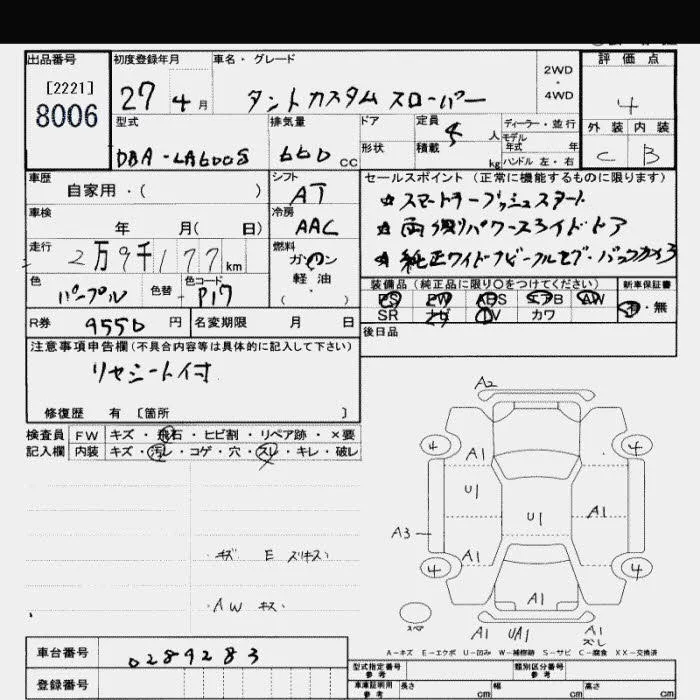 出品番号 初度登録年月 車名・グレード 2WD・4WD 評価点
[2221]
8006
27年4月 タントカスタム スローパー 4
型式 排気量 ドア 定員 人 ディーラー・並行 外装 内装
DBA-LA600S 660cc 形状 積載 kg モデル年式 年 ハンドル 左・右 C B
車歴 自家用・( ) シフト AT セールスポイント(正常に機能するものに限ります)
☆スマートキープッシュスタート
車検 年 月( 日) 冷房 AAC ☆両側パワースライドドア
走行 2万9千177km 燃料 ガソリン 軽油・( )
色 パープル 色替 - 色コード P17
装備品(純正品に限り○をつけてください) 新車保証書
PS PW ABS エアB AW 有・無
SR ナビ TV カワ
R券 9550円 名変期限 月 日 後日品
注意事項申告欄(不具合内容等は具体的に記入して下さい)
リヤシート付
修復歴 有 〔箇所 〕
検査員 FW キズ・飛石・ヒビ割・リペア跡・×要
記入欄 内装 キズ・汚レ・コゲ・穴・スレ・キレ・破レ
A2
4 4
A1
U1
U1 A1
A3
A1
4 4
A1
・キズ E スリキズ・
・AW キズ・
スペア
A1 UA1 A1
ズレ
A-キズ E-エクボ U-凹み W-補修跡 S-サビ C-腐食 XX-交換済
車台番号 0289283
登録番号
型式指定番号 参考 類別区分番号 参考
車庫証明用 参考 長さ cm 幅 cm 高さ cm